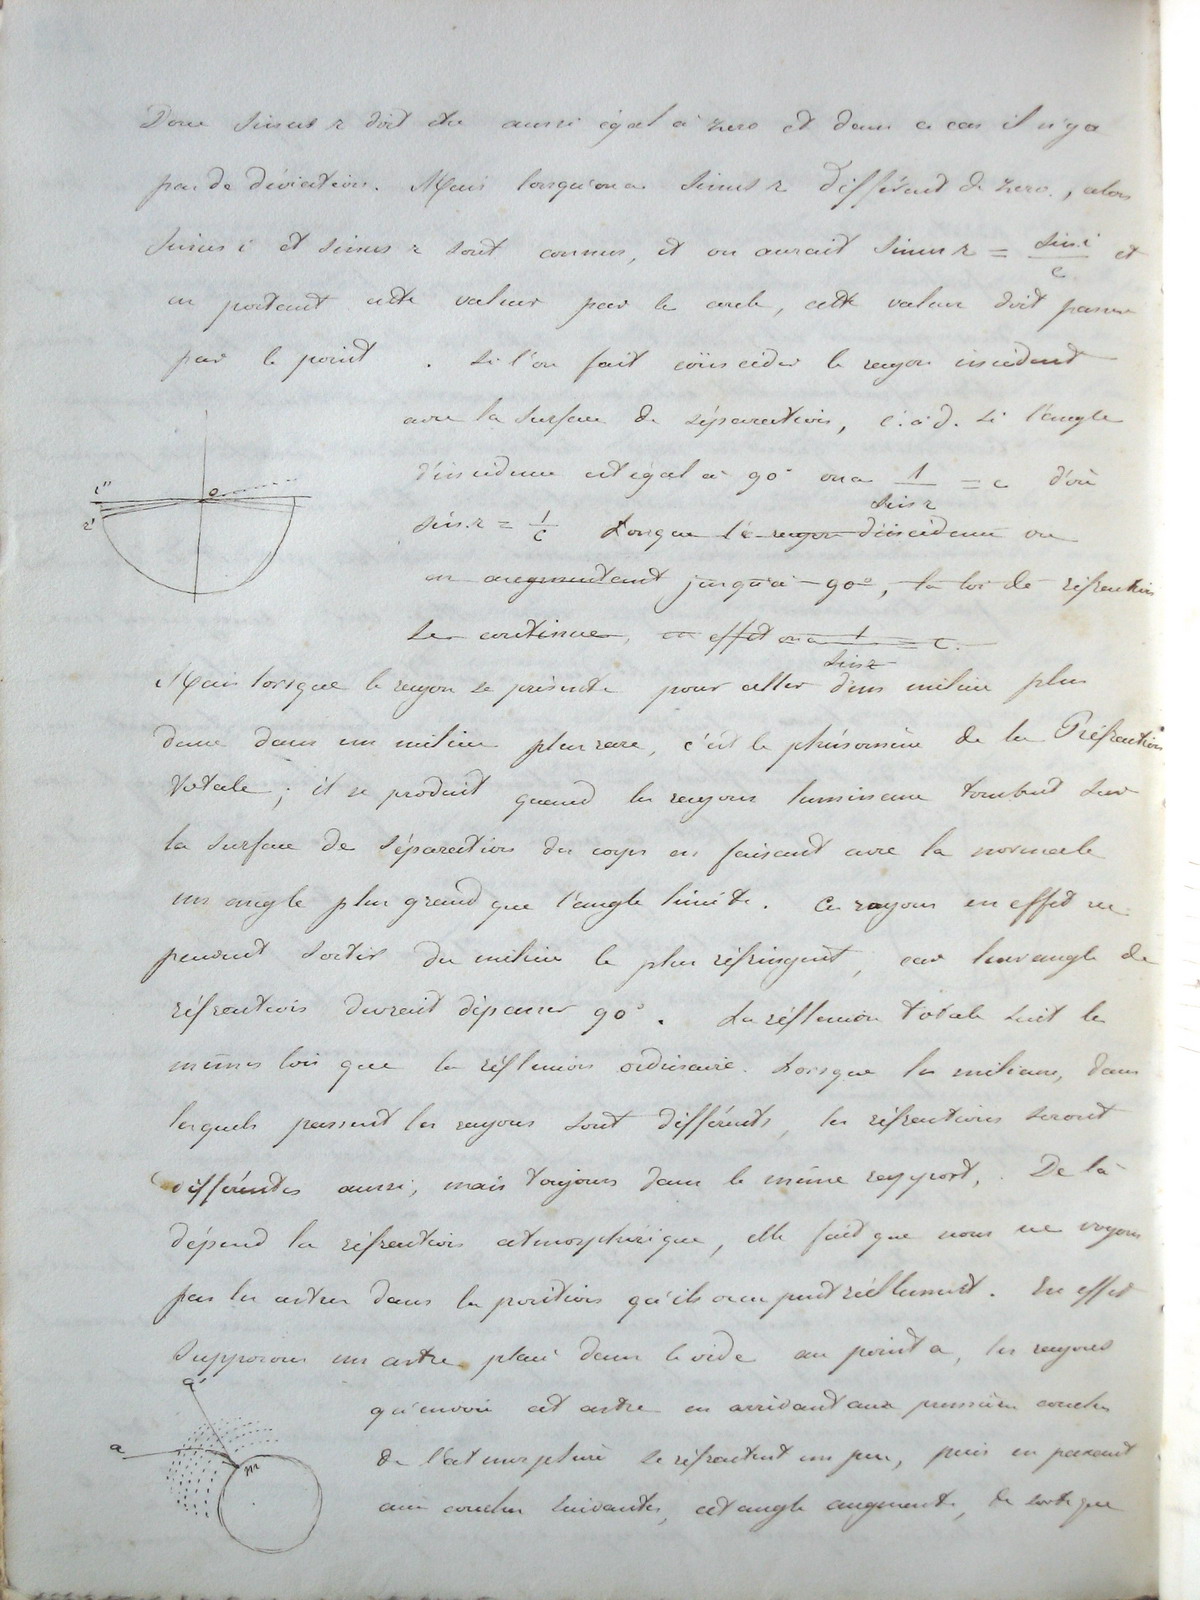 Donc sinus r doit être aussi égal à zero et dans ce cas il n'y a
pas de déviation. Mais lorsqu'on a sinus r différent de zero, alors
sinus i et sinus r sont connus, et on aurait sinus r = sin.i/c et
en portant cette valeur par le cercle, cette valeur doit passer
par le point . Si l'on fait coïncider le rayon incident
avec la surface de séparation, c.à d. si l'angle
d'incidence est égal à 90° on a 1/sin r = c d'où
sin.r = 1/c Lorsque le rayon d'incidence
en augmentant jusqu'à 90°, la loi de réfraction
se continue, en effet on a 1/sin r = c.
Mais lorsque le rayon se présente pour aller d'un milieu plus
dense dans un milieu plus rare, c'est le phénomène de la Réfraction
totale ; il se produit quand les rayons lumineux tombent sur
la surface de séparation du corps en faisant avec la normale
un angle plus grand que l'angle limite. Ces rayons en effet ne
peuvent sortir du milieu le plus réfringent, car leur angle de
réfraction devrait dépasser 90°. La réflexion totale suit les
mêmes lois que la réflexion ordinaire. Lorsque les milieux, dans
lesquels passent les rayons sont différents, les réfractions seront
différentes aussi, mais toujours dans le même rapport. De là
dépend la réfraction atmosphérique, elle fait que nous ne voyons
pas les astres dans la position qu'ils occupent réellement. En effet
supposons un astre placé dans le vide au point a, les rayons
qu'envoie cet astre en arrivant aux premières couches
de l'atmosphère se réfractent un peu, puis en passant
aux couches suivantes, cet angle augmente, de sorte que
i''
r'
o
a'
a
m